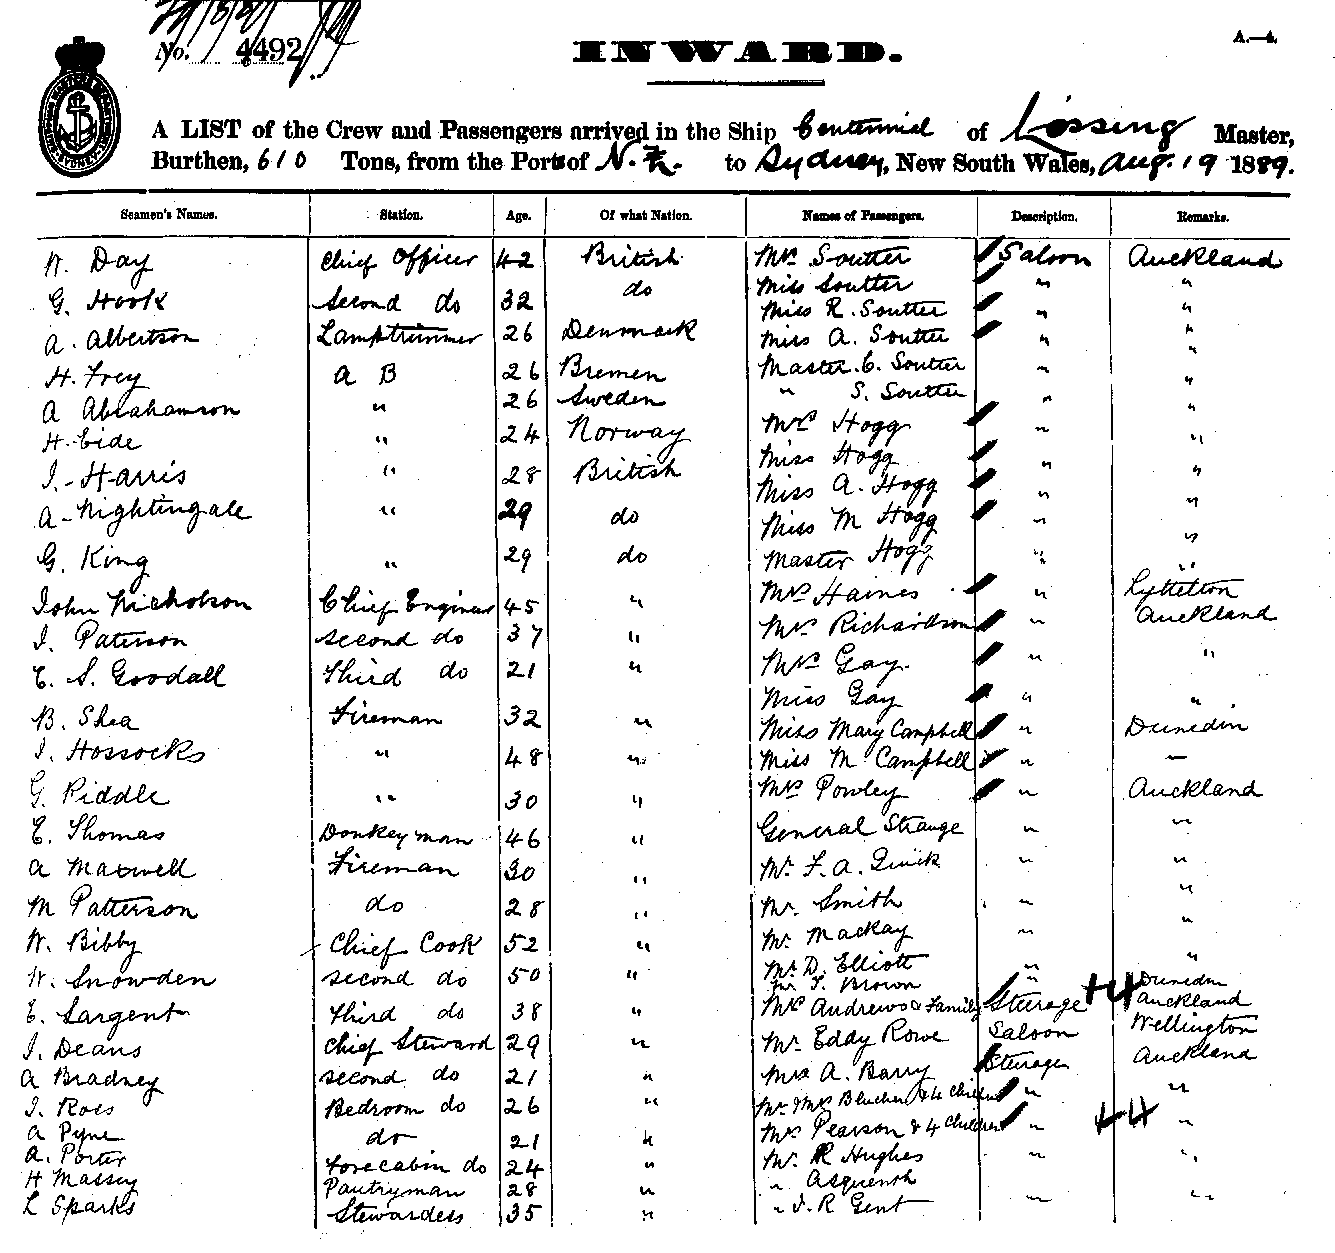 No. 4492
INWARD.
A.—4.
A LIST of the Crew and Passengers arrived in the Ship Centennial of Lossing Master,
Burthen, 610 Tons, from the Ports of N.Z. to Sydney, New South Wales, Aug. 19 1889.
Seamen's Names. Station. Age. Of what Nation. Names of Passengers. Description. Remarks.
W. Day Chief Officer 42 British Mrs Soutter Saloon Auckland
G. Hook Second do 32 do Miss Soutter " "
Miss R. Soutter " "
A. Albertson Lamptrimmer 26 Denmark Miss A. Soutter " "
H. Frey A B 26 Bremen Master C. Soutter " "
A Abrahamson " 26 Sweden " S. Soutter " "
H. Eide " 24 Norway Mrs Hogg " "
J. Harris " 28 British Miss Hogg " "
Miss A. Hogg " "
A. Nightingale " 29 do Miss M Hogg " "
G. King " 29 do Master Hogg " "
John Nicholson Chief Engineer 45 " Mrs Haines " Lyttelton
J. Paterson second do 37 " Mrs Richardson " Auckland
E. S. Goodall third do 21 " Mrs Gay. " "
Miss Gay " "
B. Shea Fireman 32 " Miss Mary Campbell " Dunedin
J. Hossocks " 48 " Miss M Campbell " —
G. Riddle " 30 " Mrs Powley " Auckland
E. Thomas Donkeyman 46 " General Strange " "
A Maxwell Fireman 30 " Mr. F. A. Quick " "
M Patterson do 28 " Mr. Smith " "
W. Bibby Chief Cook 52 " Mr. Mackay " "
W. Snowden second do 50 " Mr. D. Elliott " "
Mr. T. Brown " Dunedin
E. Sargent third do 38 " Mrs Andrews & Family Steerage +4 Auckland
J. Deans Chief Steward 29 " Mr. Eddy Rowe Saloon Wellington
A Bradney second do 21 " Mrs A. Barry Steerage Auckland
J. Ross Bedroom do 26 " Mr. & Mrs & 4 Children " "
A Pyne do 21 " Mrs Pearson & 4 Children " +4 "
A. Porter Forecabin do 24 " Mr. R Hughes " "
H Massey Pantryman 28 " " Asquenth
L Sparks Stewardess 35 " " J. R Gent " "